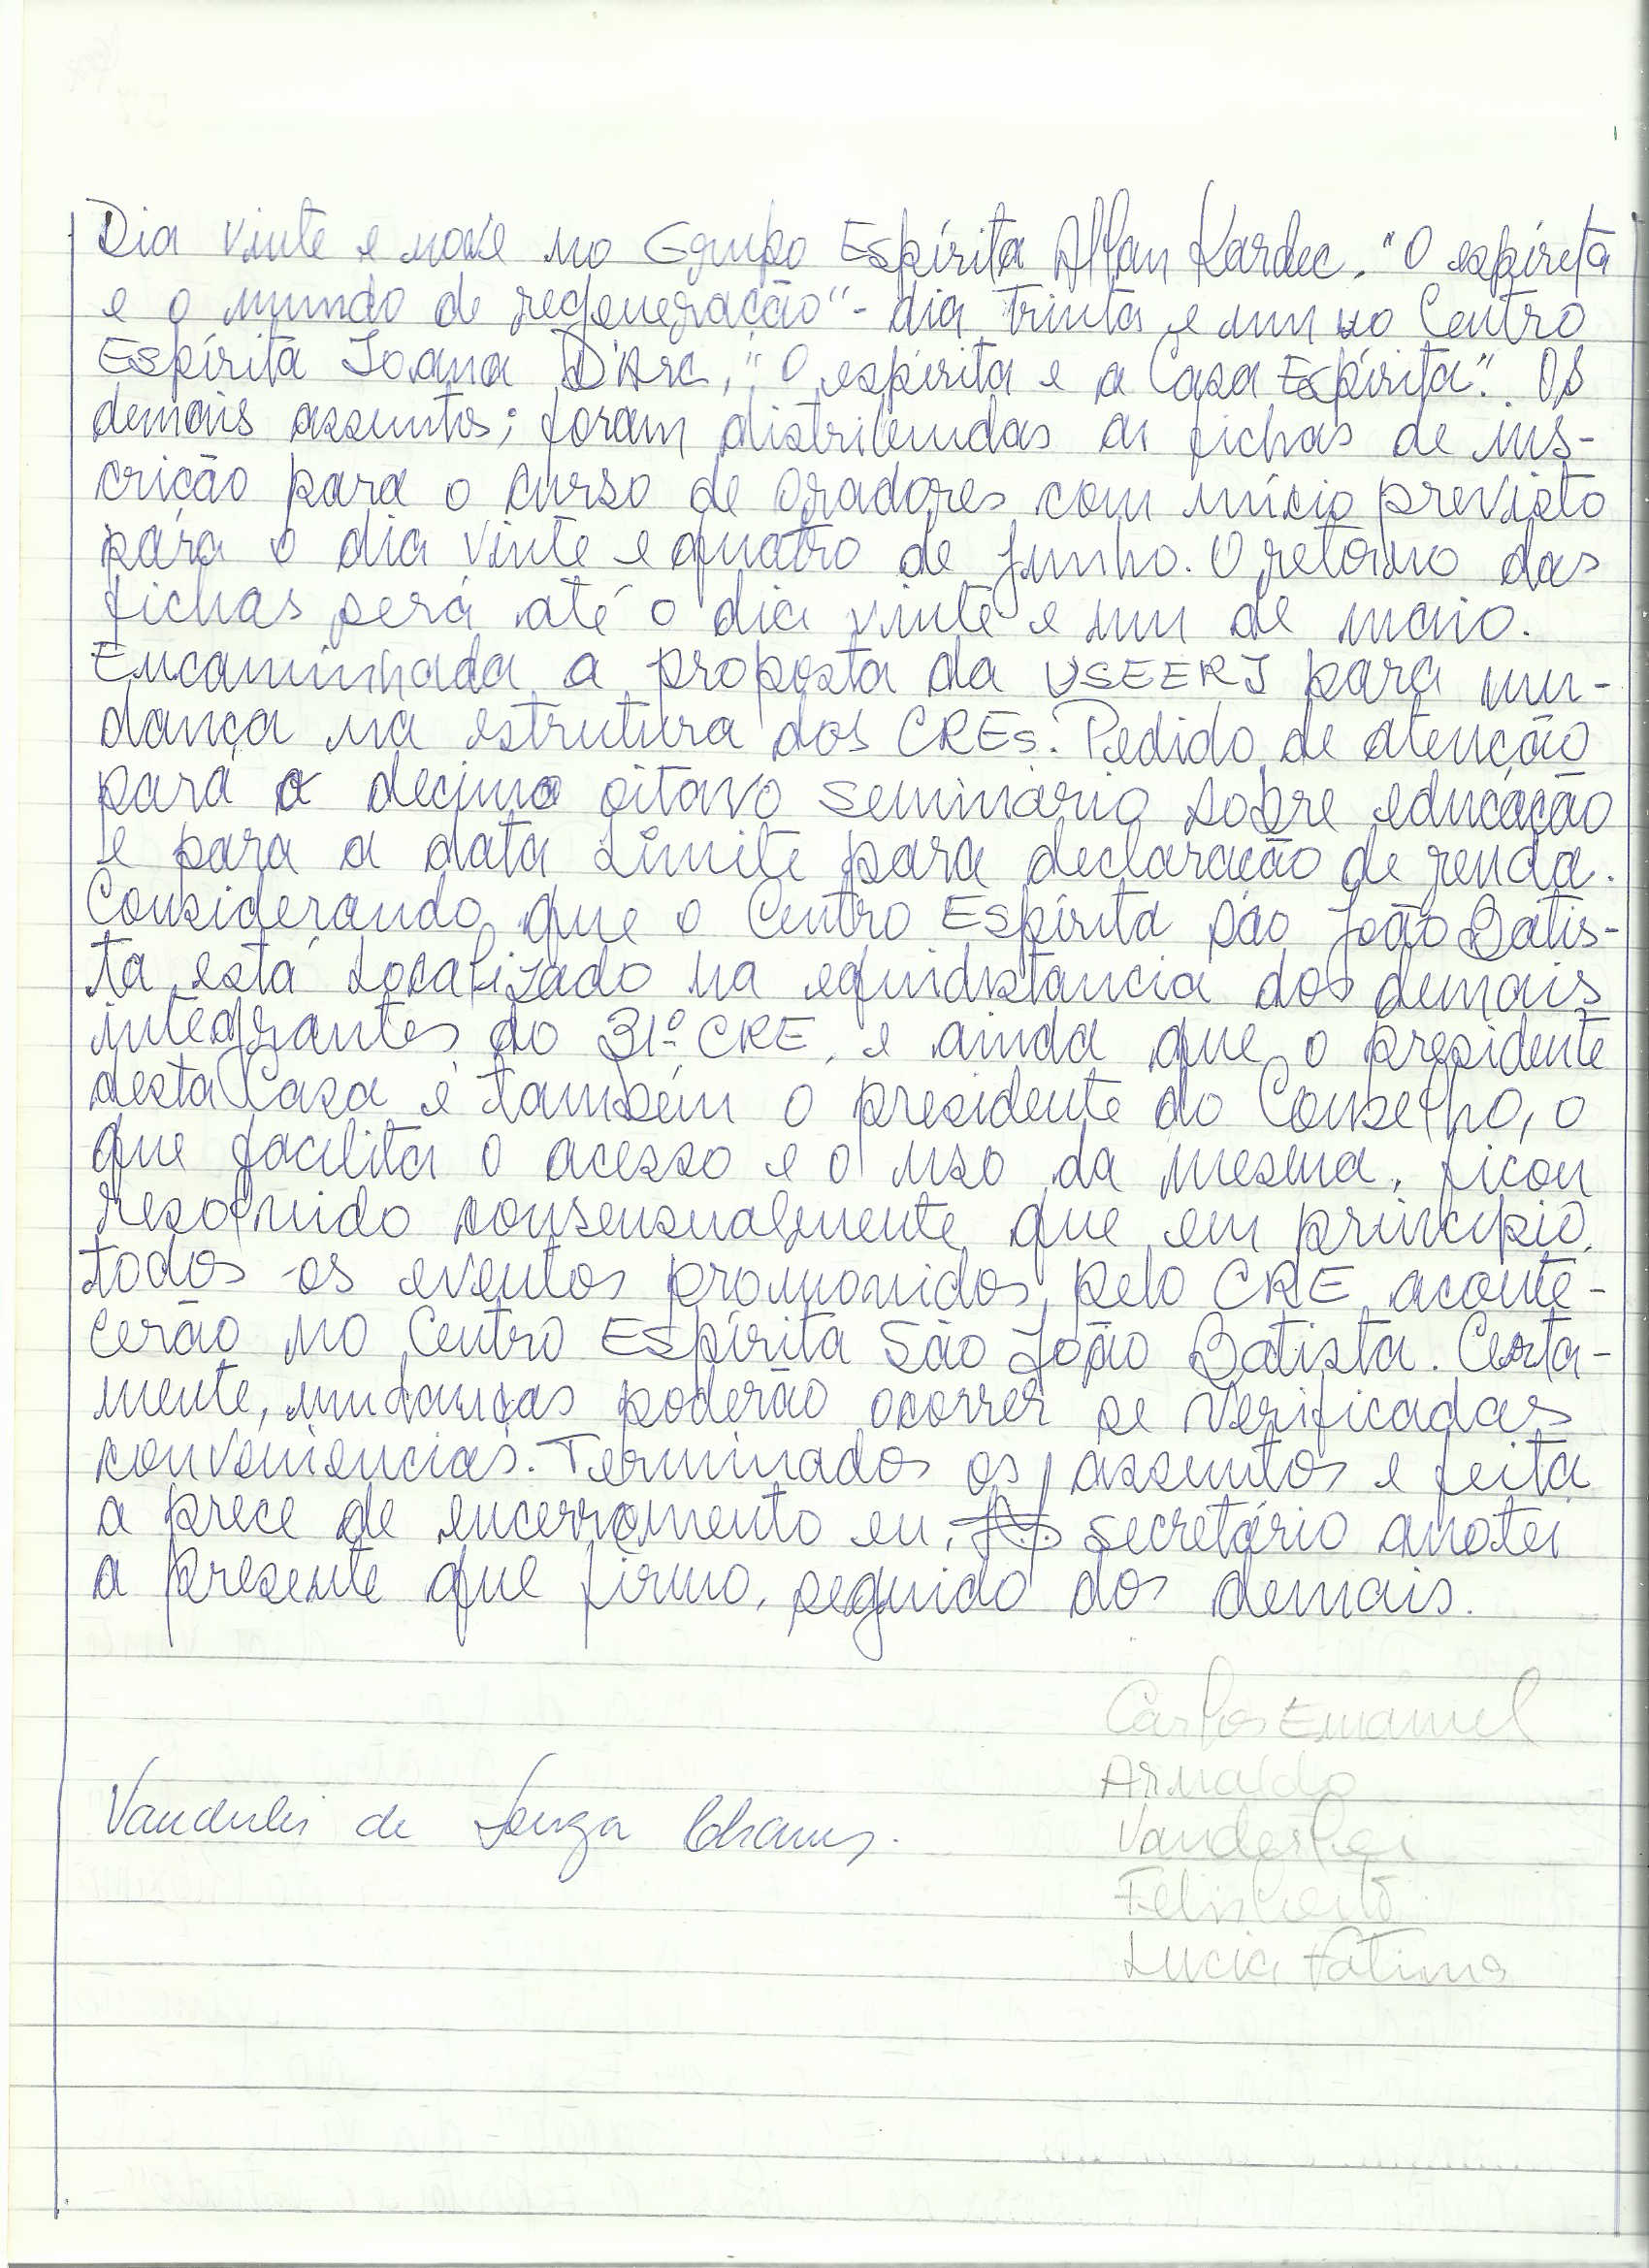 Dia vinte e nove no Grupo Espírita Allan Kardec. "O espírita
e o mundo de regeneração" - dia trinta e um no Centro
Espírita Joana D'Arc, "O espírita e a Casa Espírita". Os
demais assuntos; foram distribuidas as fichas de ins-
crição para o curso de oradores com início previsto
para o dia vinte e quatro de junho. O retorno das
fichas será até o dia vinte e um de maio.
Encaminhada a proposta da USEERJ para mu-
dança na estrutura dos CREs. Pedido de atenção
para o decimo oitavo seminário sobre educação
e para a data limite para declaração de renda.
Considerando que o Centro Espírita São João Batis-
ta está localizado na equidistancia dos demais
integrantes do 31º CRE, e ainda que o presidente
desta Casa é também o presidente do Conselho, o
que facilita o acesso e o uso da mesma, ficou
resolvido consensualmente que em princípio,
todos os eventos promovidos pelo CRE aconte-
cerão no Centro Espírita São João Batista. Certa-
mente, mudanças poderão ocorrer se verificadas
conveniencias. Terminados os assuntos e feita
a prece de encerramento eu, secretário anotei
a presente que firmo, seguido dos demais.
Carlos Emanuel
Arnaldo
Vanderlei de Souza Chaves.
Vanderlei
Felisberto
Lucia Fatima